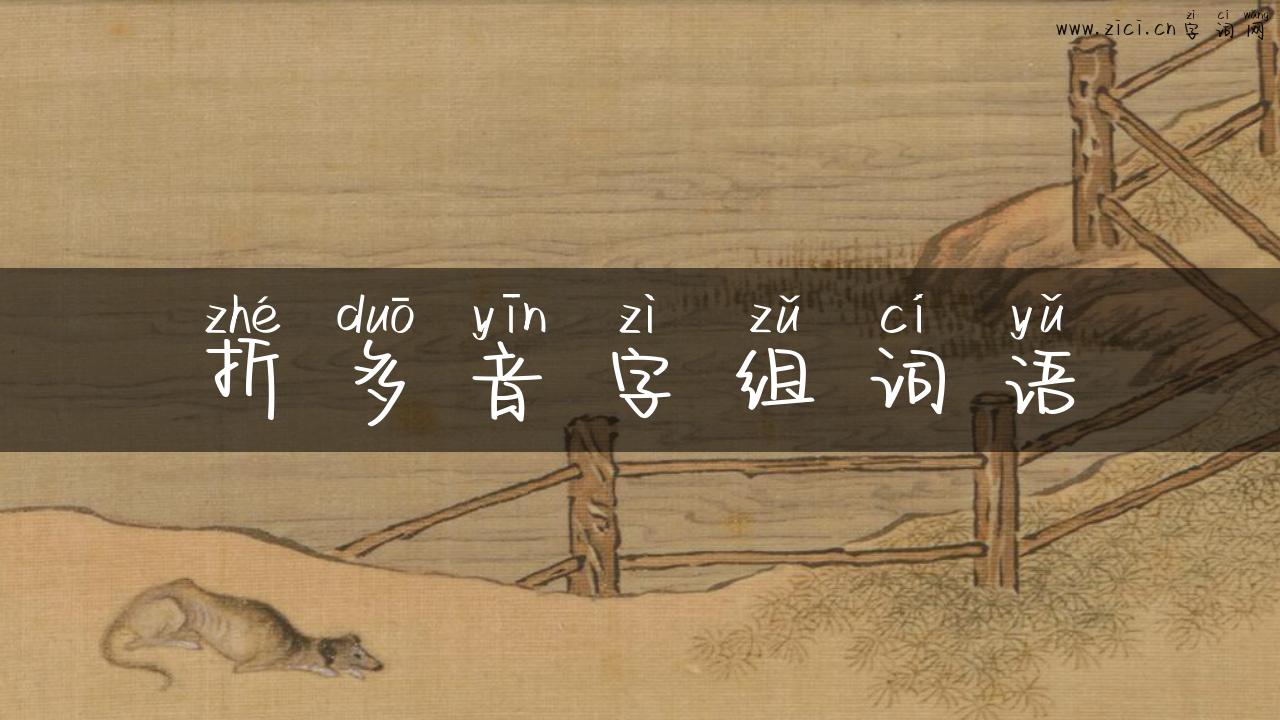 zì cí wǎng
www.zici.cn字词网
zhé duō yīn zì zǔ cí yǔ
折多音字组词语